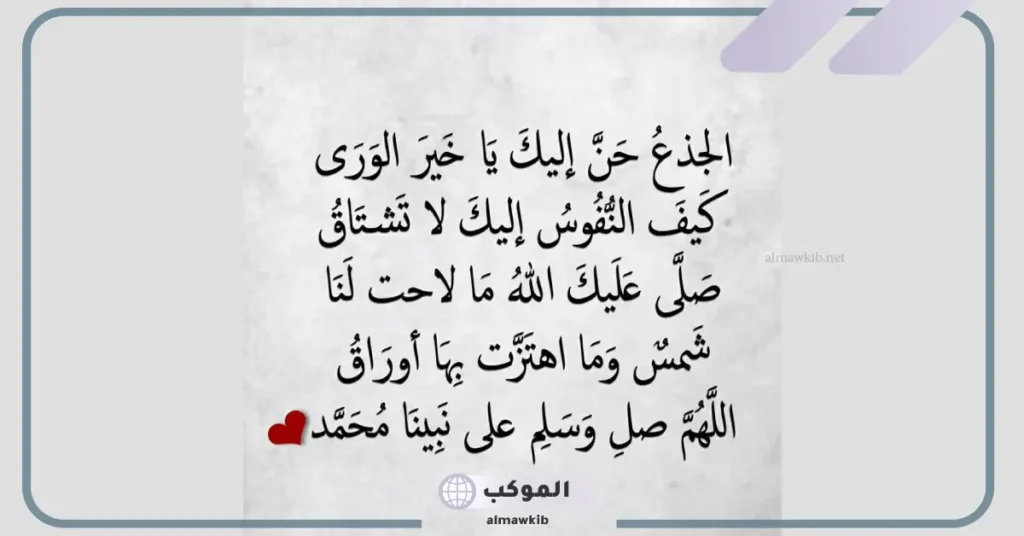 الجذعُ حَنَّ إليكَ يَا خَيرَ الوَرَى
كَيفَ النُّفُوسُ إليكَ لا تَشتَاقُ
صَلَّى عَلَيكَ اللهُ مَا لاحت لَنَا
شَمسٌ وَمَا اهتَزَّت بِهَا أورَاقُ
اللَّهُمَّ صلِ وَسَلِم على نَبِينَا مُحَمَّد
almawkib.net
الموكب
almawkib